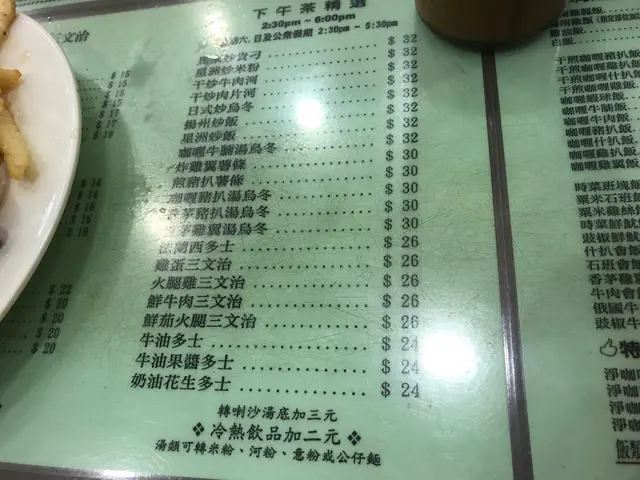 三文治
$ 15
$ 15
$ 17
$ 14
$ 14
$ 16
$ 16
$ 22
$ 20
$ 20
$ 20
下午茶精選
2:30pm ~ 6:00pm
六,日及公衆假期 2:30pm ~ 5:30pm
炒貴刁 $ 32
星洲炒米粉 $ 32
干炒牛肉河 $ 32
干炒肉片河 $ 32
日式炒烏冬 $ 32
揚州炒飯 $ 32
星洲炒飯 $ 32
咖喱牛腩湯烏冬 $ 30
炸雞翼薯條 $ 30
煎豬扒薯條 $ 30
咖喱豬扒湯烏冬 $ 30
香茅豬扒湯烏冬 $ 30
香茅雞翼湯烏冬 $ 30
法蘭西多士 $ 26
雞蛋三文治 $ 26
火腿雞三文治 $ 26
鮮牛肉三文治 $ 26
鮮茄火腿三文治 $ 26
牛油多士 $ 24
牛油果醬多士 $ 24
奶油花生多士 $ 24
轉喇沙湯底加三元
❖ 冷熱飲品加二元 ❖
湯類可轉米粉、河粉、意粉或公仔麵
白飯
干煎咖喱豬扒飯
干煎咖喱雞扒飯
咖喱蝦球飯
咖喱牛腩飯
咖喱牛肉飯
咖喱豬扒飯
咖喱什扒飯
咖喱雞扒飯
咖喱雞翼飯
時菜班塊飯
粟米石班飯
粟米雞絲飯
時菜鮮魷
豉椒鮮魷
什扒會飯
石班會飯
香茅雞
牛肉會飯
俄國牛
豉椒牛
特
淨咖
淨咖
淨咖
淨咖
飯類